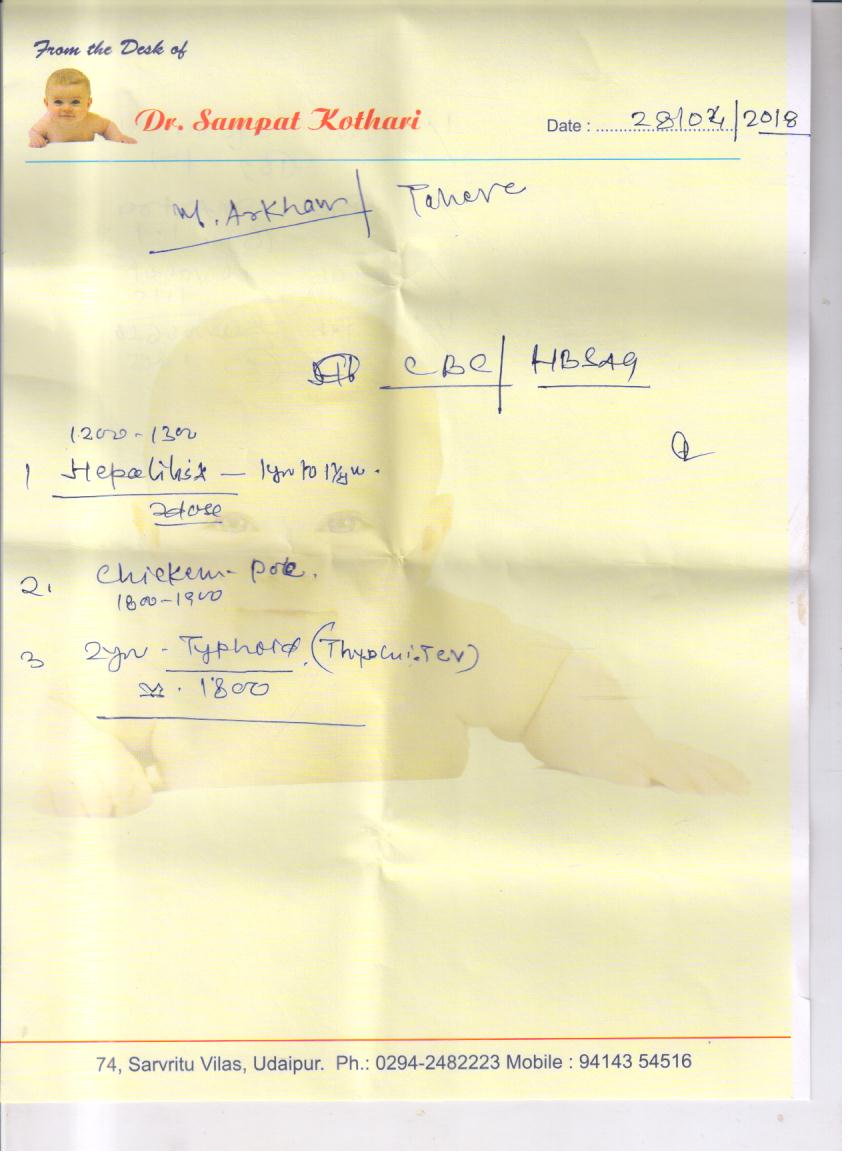 From the Desk of
Dr. Sampat Kothari
Date : 28/04/2018
M. Arkham / Tahere
CBC / HBSAg
1200-1300
1 Hepatitis - 1yr to 1½yr.
2dose
2. Chicken-pox.
1800-1900
3 2yr - Typhoid. (
1800
74, Sarvritu Vilas, Udaipur. Ph.: 0294-2482223 Mobile : 94143 54516